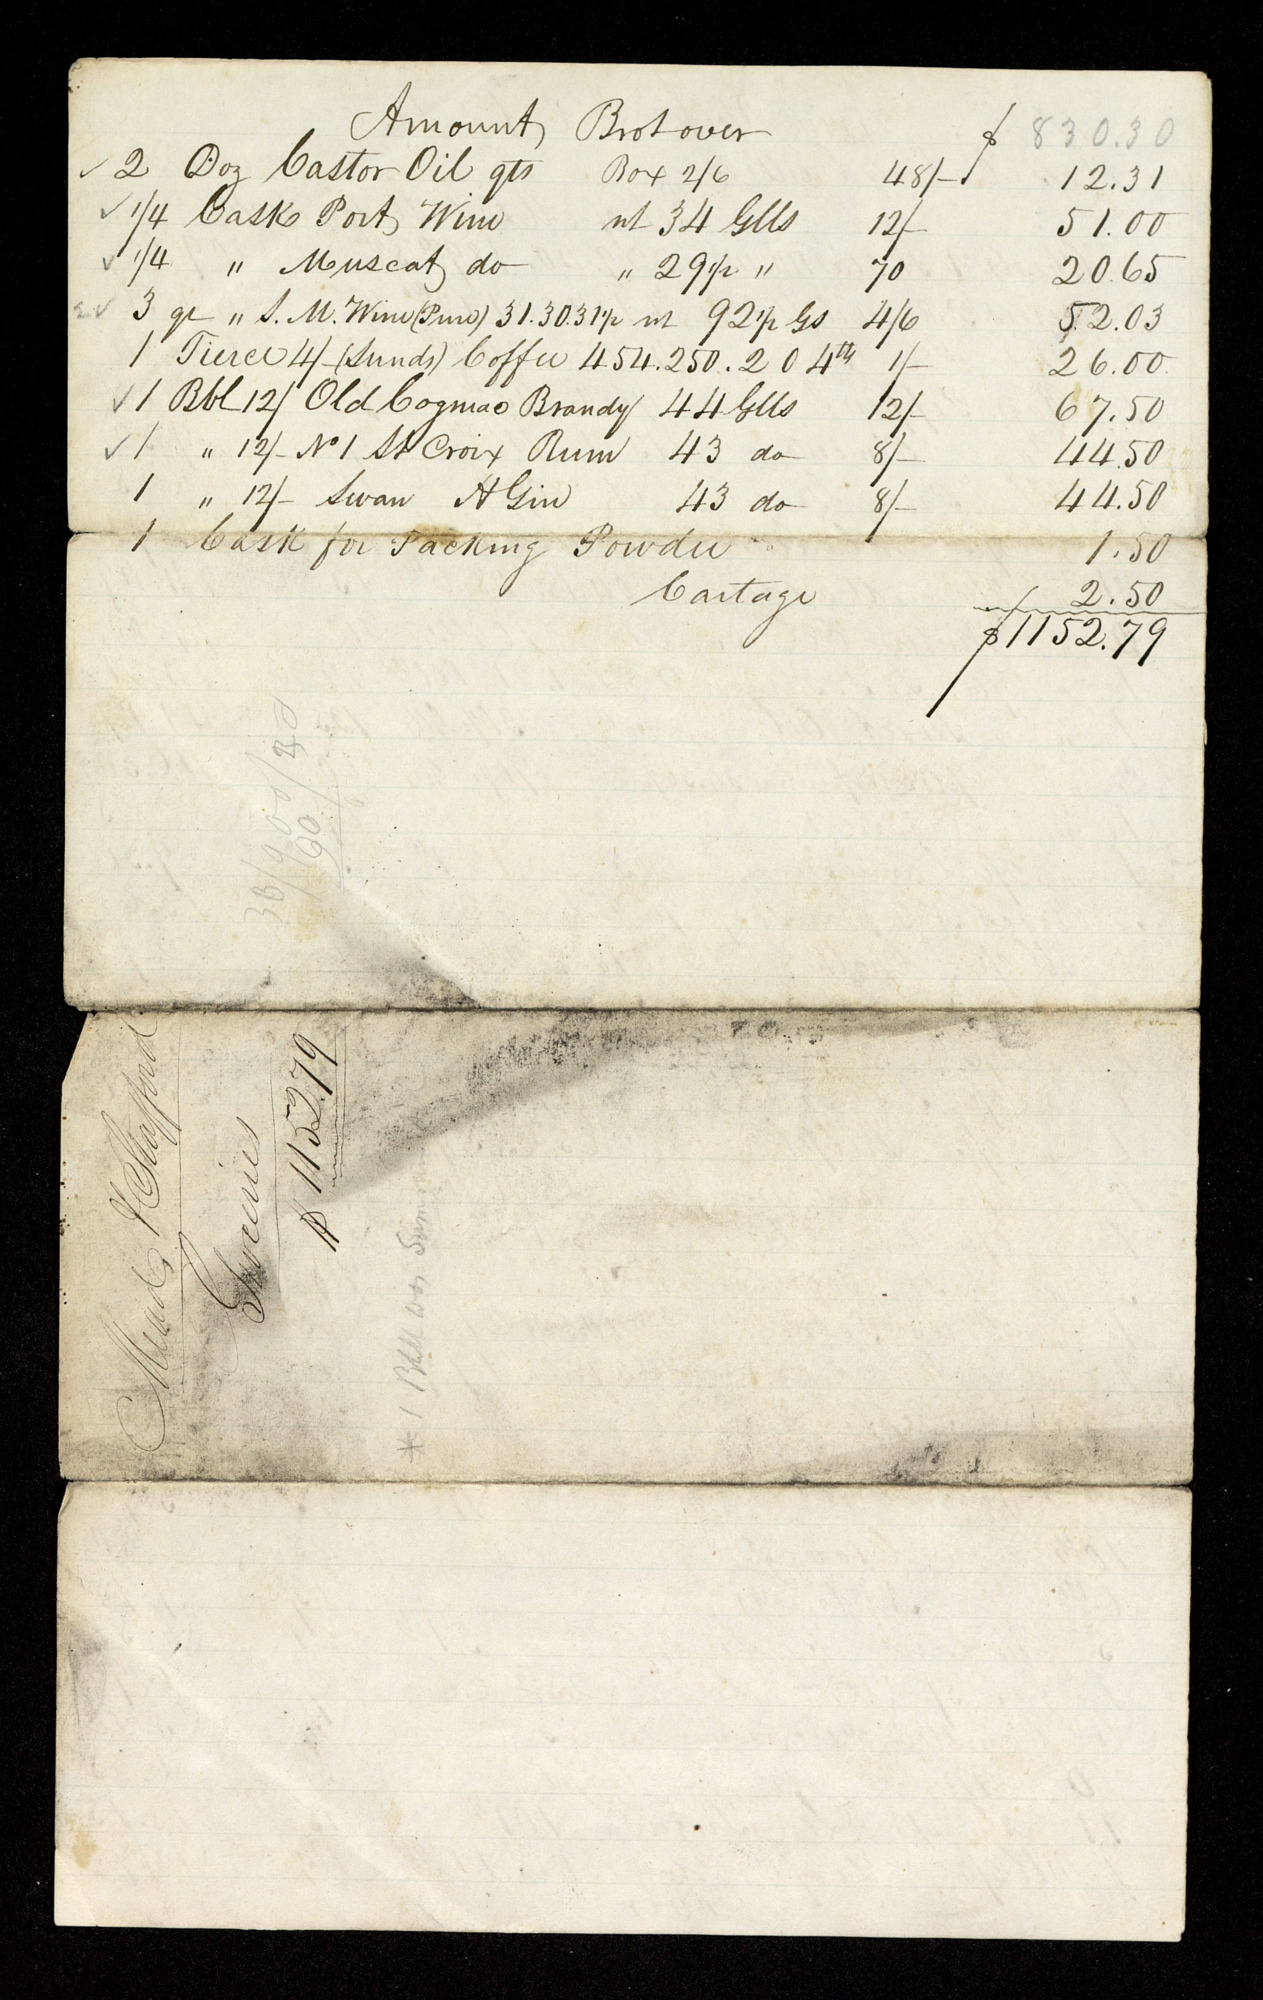 Amount Brot over $ 830.30
✓ 2 Doz Castor Oil qts Box 2/6 48/- 12.31
✓ 1/4 Cask Port Wine nt 34 Glls 12/- 51.00
✓ 1/4 " Muscat do " 29 1/2 " 70 20.65
✓ 3 qr " S. M. Wine (Pure) 31. 30. 31 1/2 nt 92 1/2 Gs 4/6 52.03
1 Tierce 4/- (Sunds) Coffee 454. 250. 204 lb 1/- 26.00
✓ 1 Bbl 12/ Old Cogniac Brandy 44 Glls 12/- 67.50
✓ 1 " 12/- No 1 St Croix Rum 43 do 8/- 44.50
1 " 12/- Swan H Gin 43 do 8/- 44.50
1 Cask for Packing Powder 1.50
Cartage 2.50
$1152.79
Mead & Stafford
Groceries
$ 1152.79
* 1 Bbll